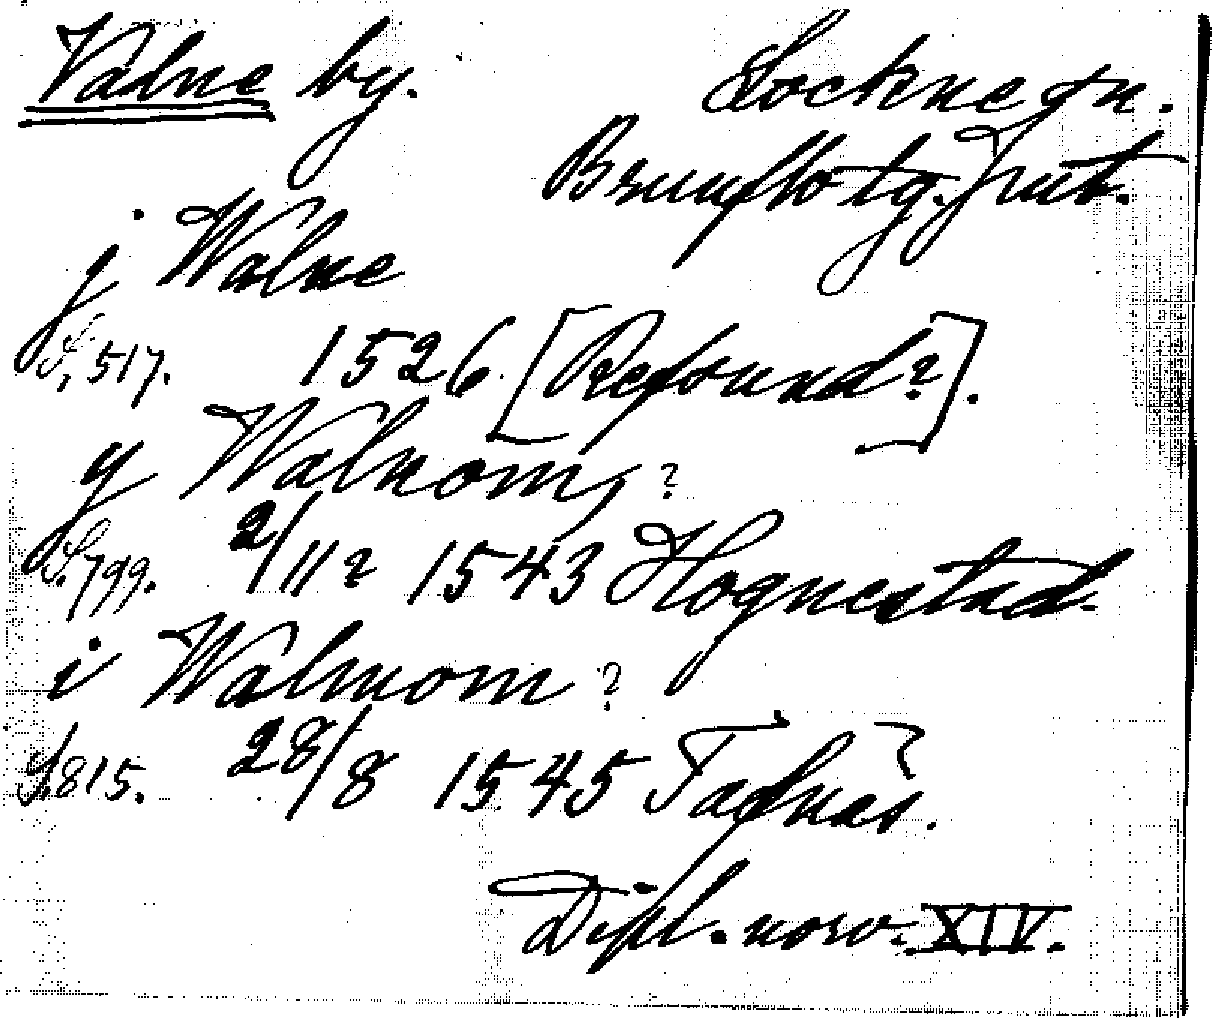 Valne by. Lockne sn.
Brunflo tg. Jmt.
j Walne
S. 517. 1526 [Refsund?].
y Walnom, ?
S. 799. 2/11? 1543 Hognestad
i Walnom ?
S. 815. 28/8 1545 Tafnäs.
Dipl. norv. XIV.